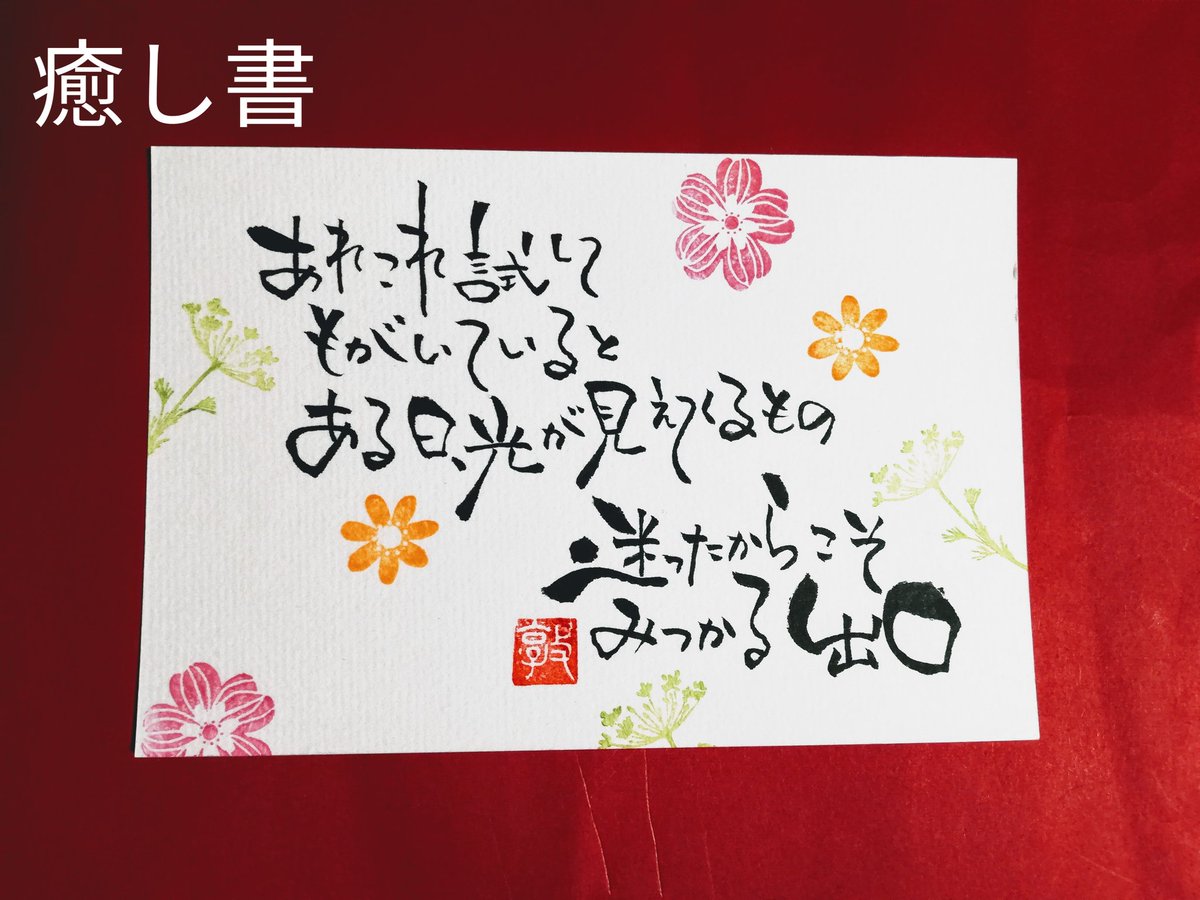 癒し書
あれこれ試して
もがいていると
ある日、光が見えてくるもの
迷ったからこそ
みつかる出口
敦